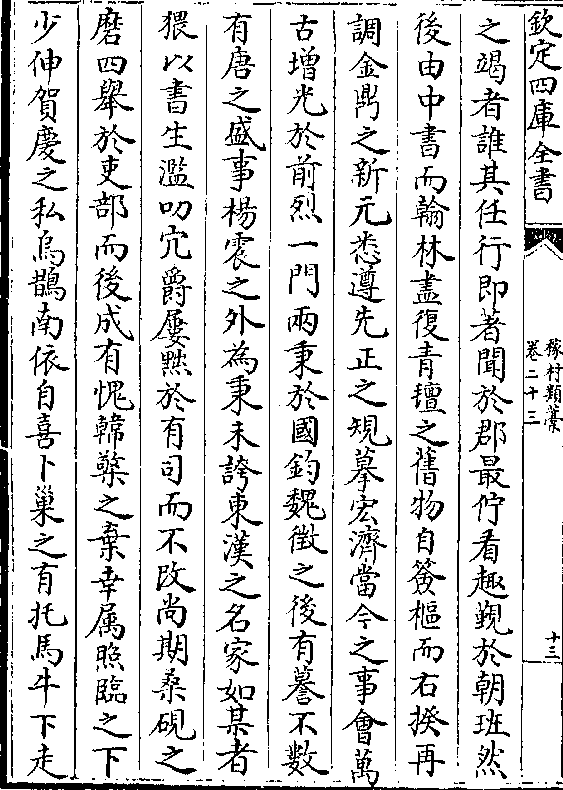 欽定四庫全書
稼村類藁
卷二十三
十三
之竭者誰其任行即著聞於郡最佇看趣覲於朝班然
後由中書而翰林盡復青氊之舊物自簽樞而右揆再
調金鼎之新元悉遵先正之規摹宏濟當今之事會萬
古增光於前烈一門兩秉於國鈞魏徴之後有謩不數
有唐之盛事楊震之外為秉未誇東漢之名家如某者
猥以書生濫叨冗爵屢黜於有司而不改尚期桑硯之
磨四舉於吏部而後成有愧韓檠之棄幸屬照臨之下
少伸賀慶之私烏鵲南依自喜卜巢之有托馬牛下走